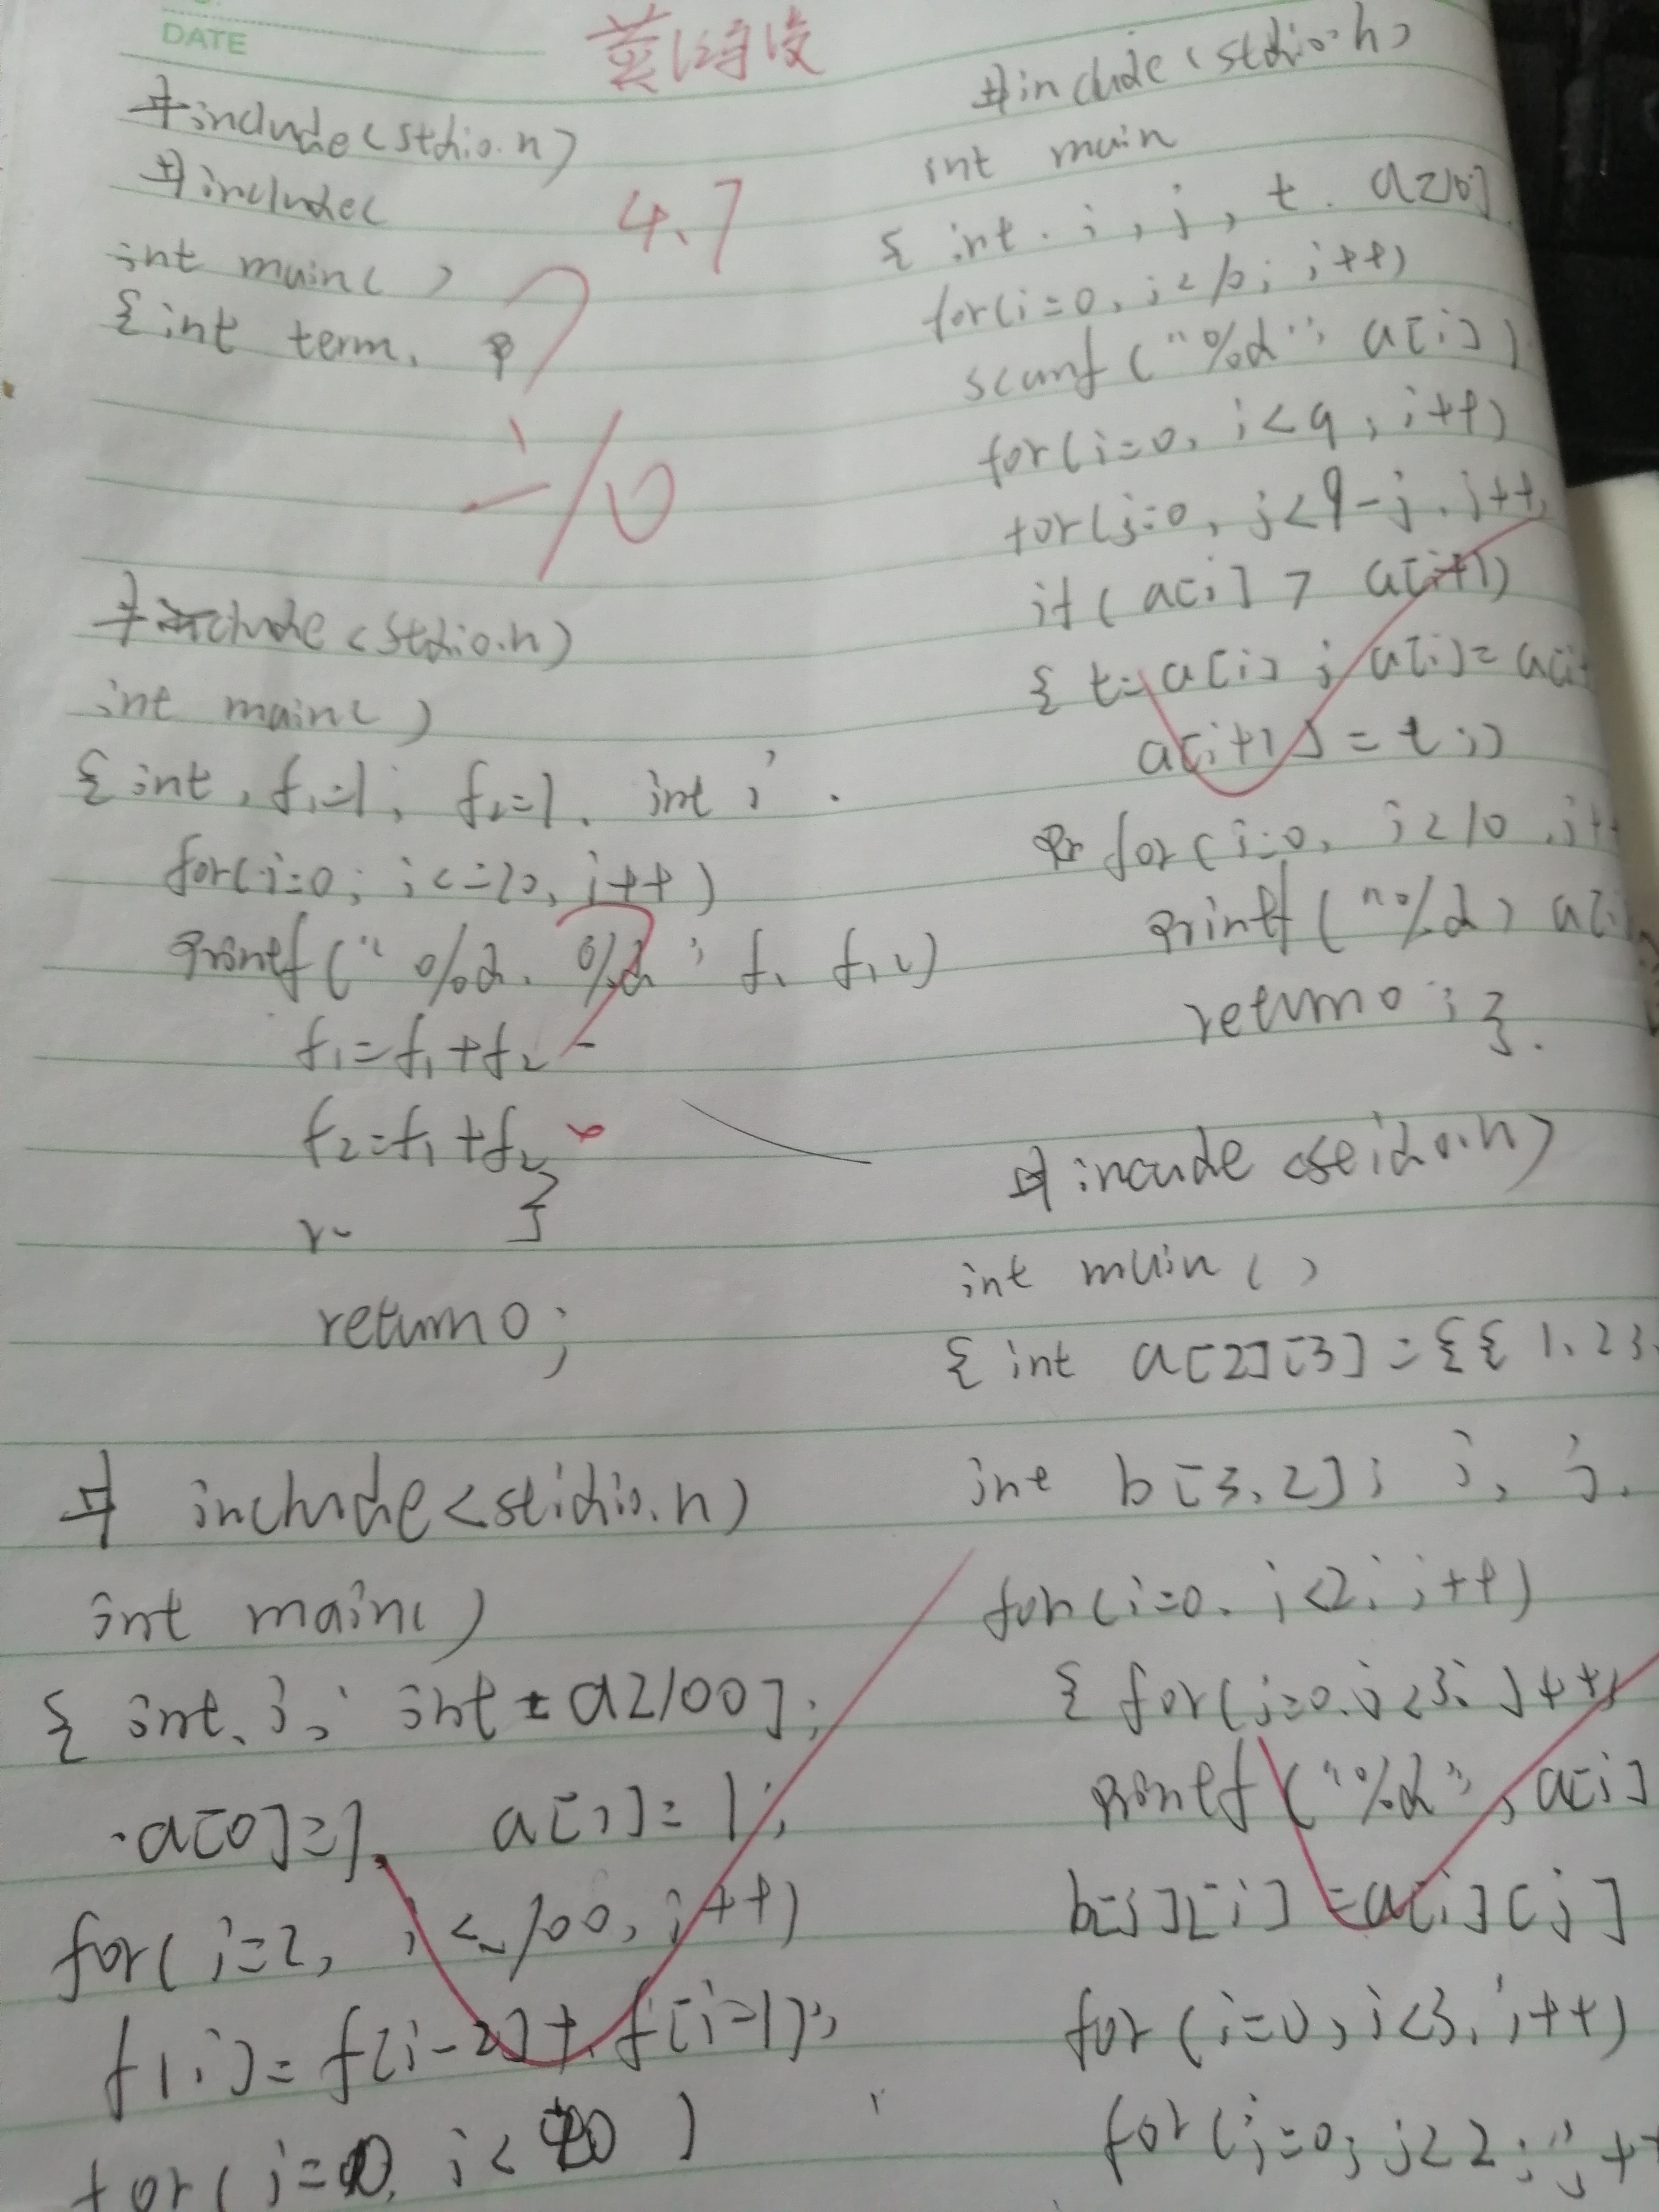 DATE
#include(stdio.h)
#include<
int main( )
{int term, p
4.7
-10
#include<stdio.h)
int main( )
{int, f1=1; f2=1. int i
for(i=0; i<=20, i++)
printf(" %d. %d " f1 f2)
f1=f1+f2
f2=f1+f2
}
return 0;
# include<stidio.h)
int main( )
{ int i; int a[100];
a[0]=1, a[1]=1;
for( i=2, i<100, i++)
f[i]=f[i-2]+f[i-1];
for(i=0, i<20 )
#include<stdio.h>
int main
{ int i, j, t. a[10]
for(i=0, i<10; i++)
scanf("%d", a[i])
for(i=0, i<9; i++)
for(j=0, j<9-j. j++
if(a[i] > a[i+1)
{ t=a[i]; a[i]=a[i
a[i+1]=t;)
for(i=0, i<10, i+
printf("%d) a[
return 0; }.
# incude <seido.h)
int main( )
{ int a[2][3]={{ 1, 2 3
int b[3,2]; i, j.
for(i=0. i<2, i++)
{ for(j=0, j<3; j++)
printf("%d", a[i]
b[j][i]=a[i][j]
for (i=0, i<3, i++)
for(j=0; j<2; j+